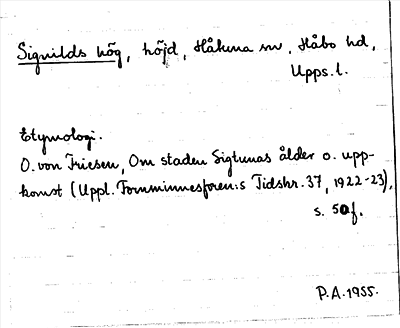 Signilds hög, höjd, Håtuna sn, Håbo hd,
Upps. l.
Etymologi.
O. von Friesen, Om staden Sigtunas ålder o. upp-
komst (Uppl. Fornminnesfören:s Tidskr. 37, 1922-23),
s. 50f.
P.A. 1955.